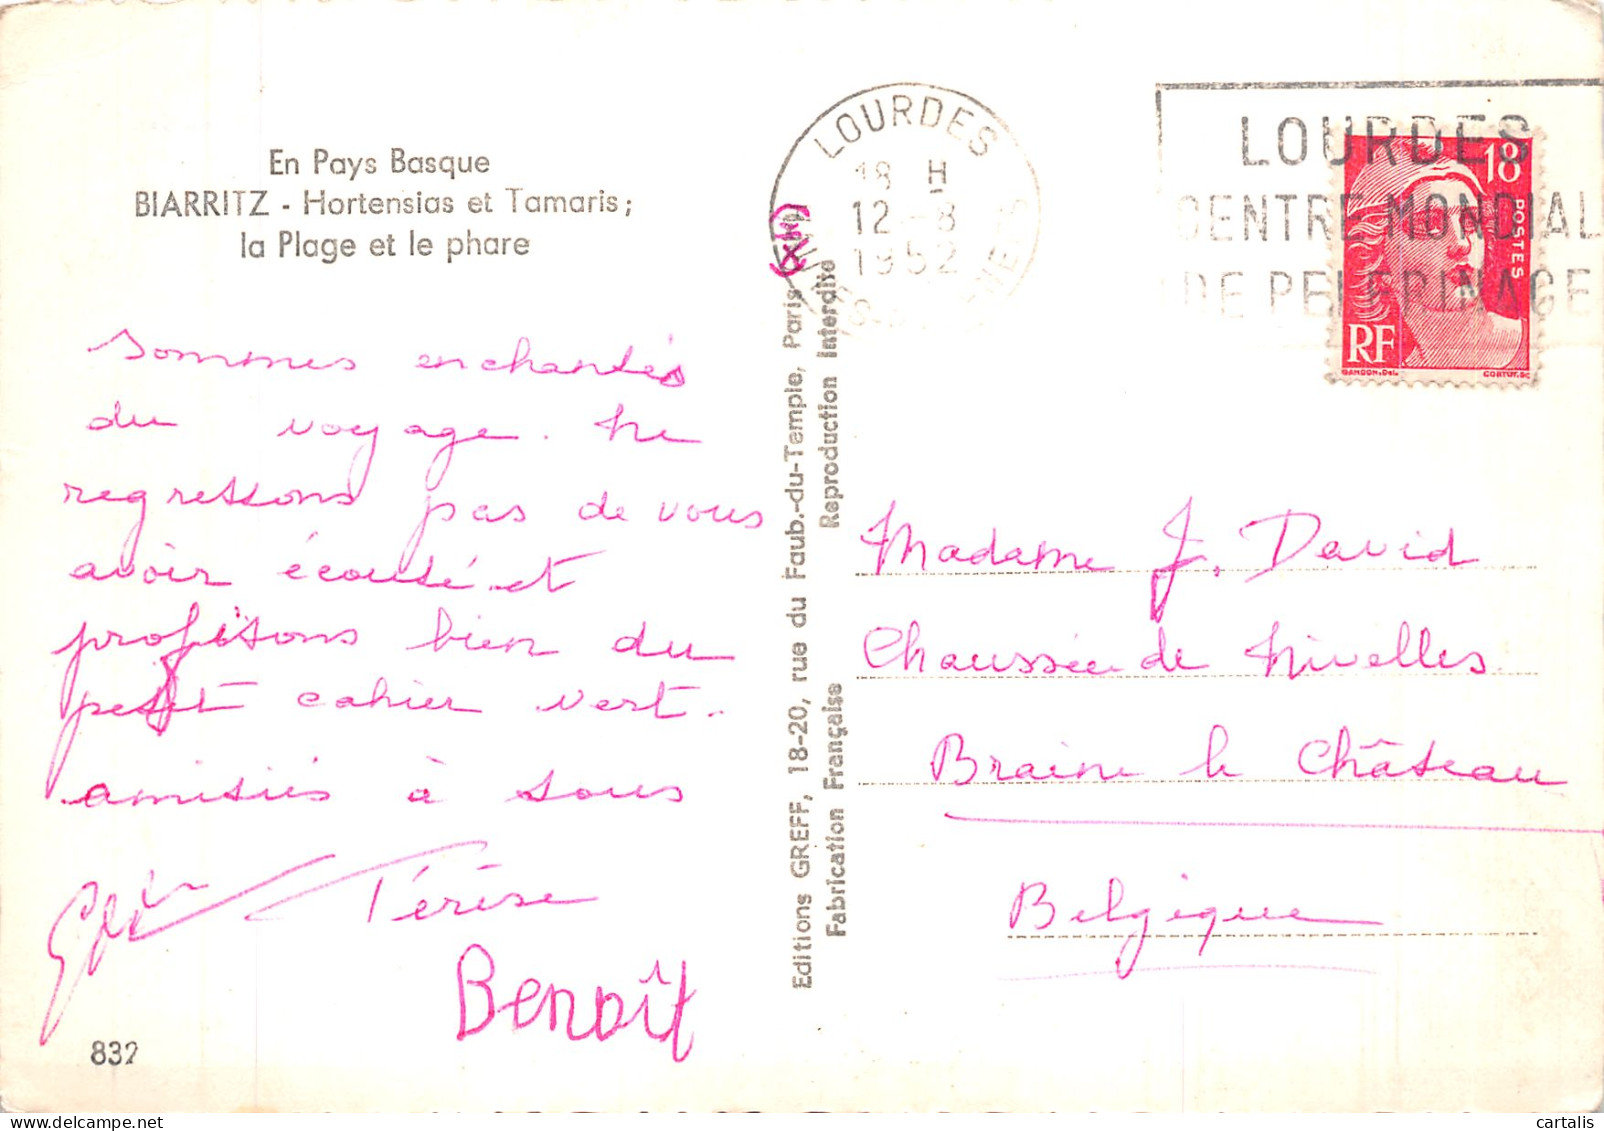 En Pays Basque
BIARRITZ - Hortensias et Tamaris;
la Plage et le phare
Sommes enchantés
du voyage. Ne
regrettons pas de vous
avoir écouté et
profitons bien du
petit cahier vert.
amitiés à tous
Térèse
Benoît
832
Editions GREFF, 18-20, rue du Faub.-du-Temple, Paris (XIe)
Fabrication Française Reproduction Interdite
LOURDES
18 H
12 - 8
1952
LOURDES
CENTRE MONDIAL
DE PELERINAGE
18F
POSTES
RF
GANDON.Del.
CORTOT.SC
Madame J. David
Chaussée de Nivelles
Braine le Château
Belgique
cartalis